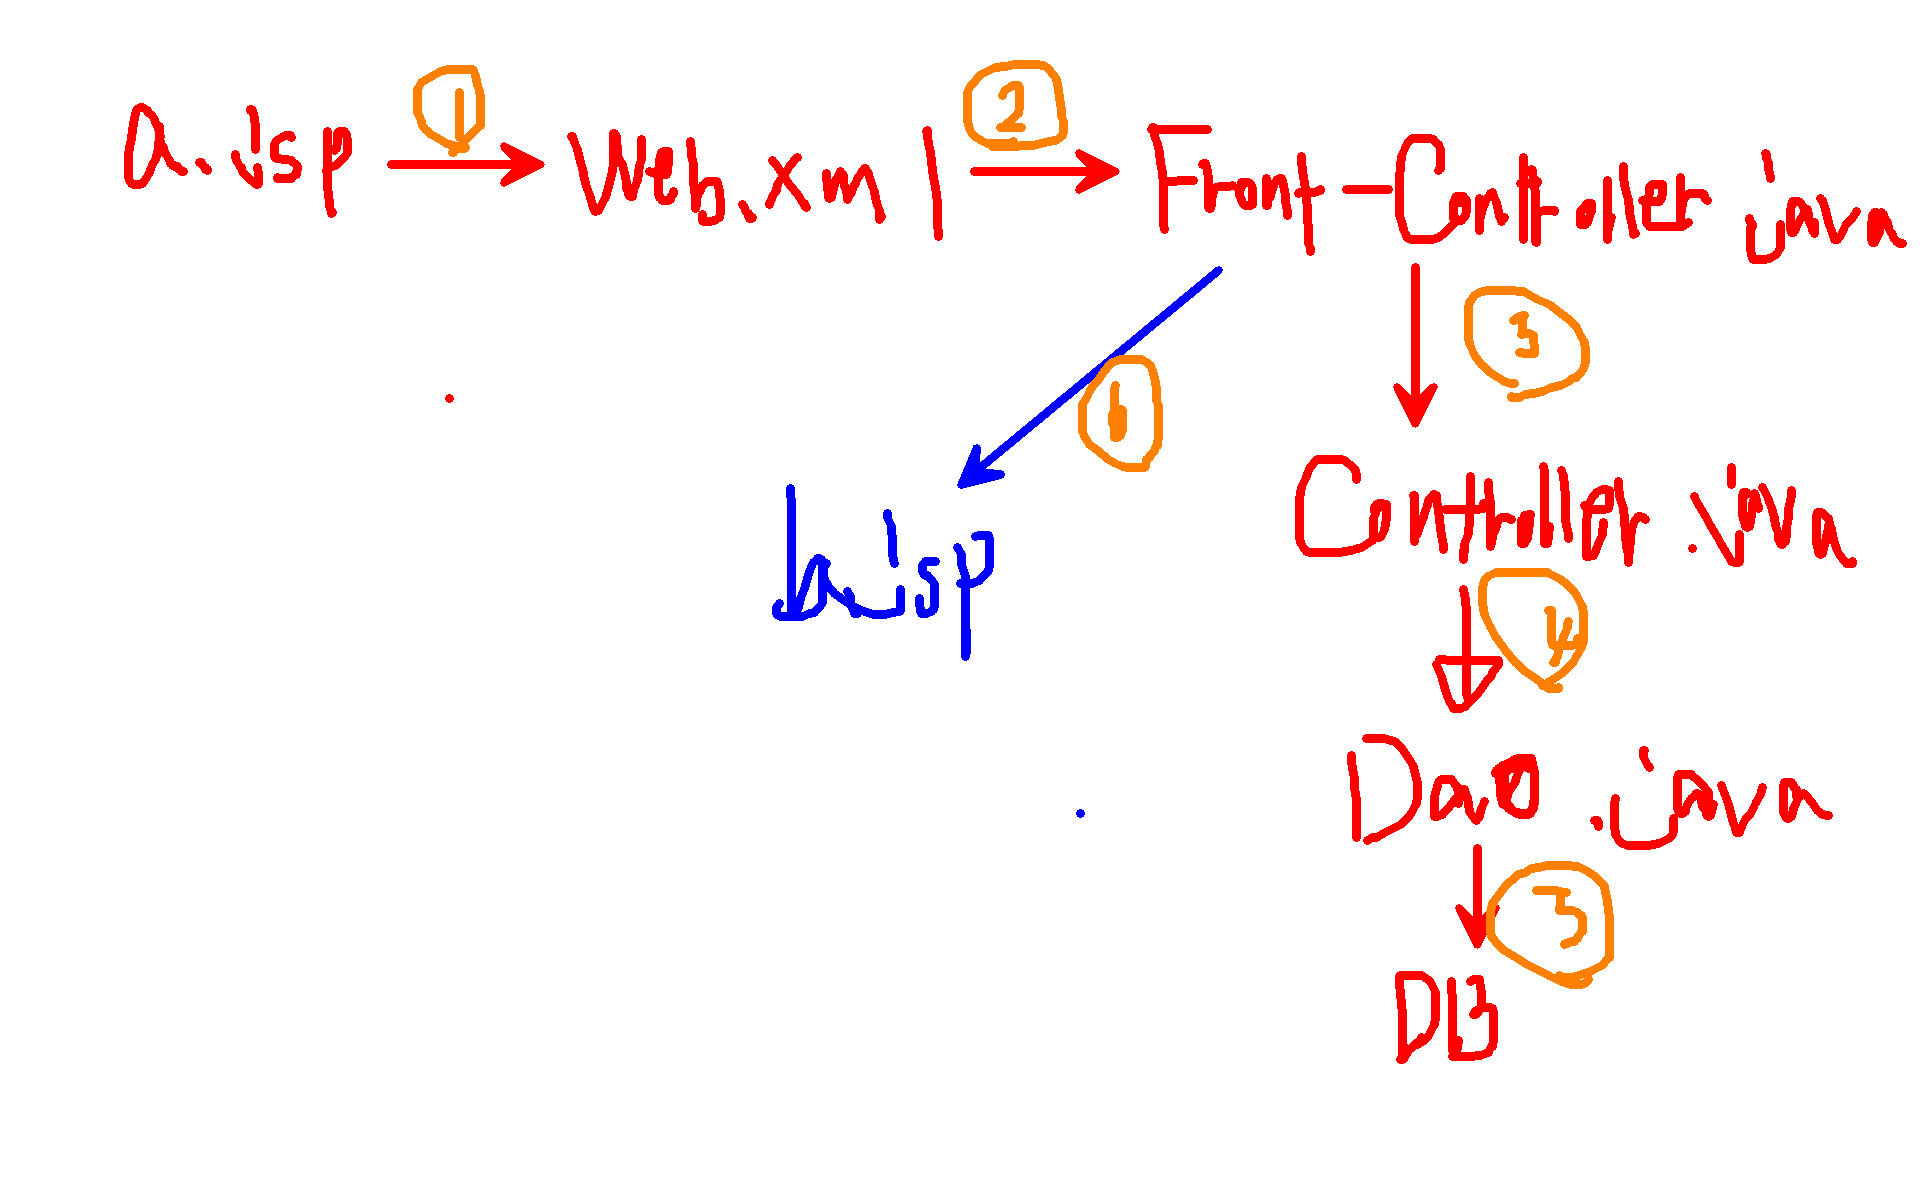 1 2
a.jsp Web.xml Front-Controller.java
3
6
Controller.java
b.jsp
4
Dao.java
5
DB